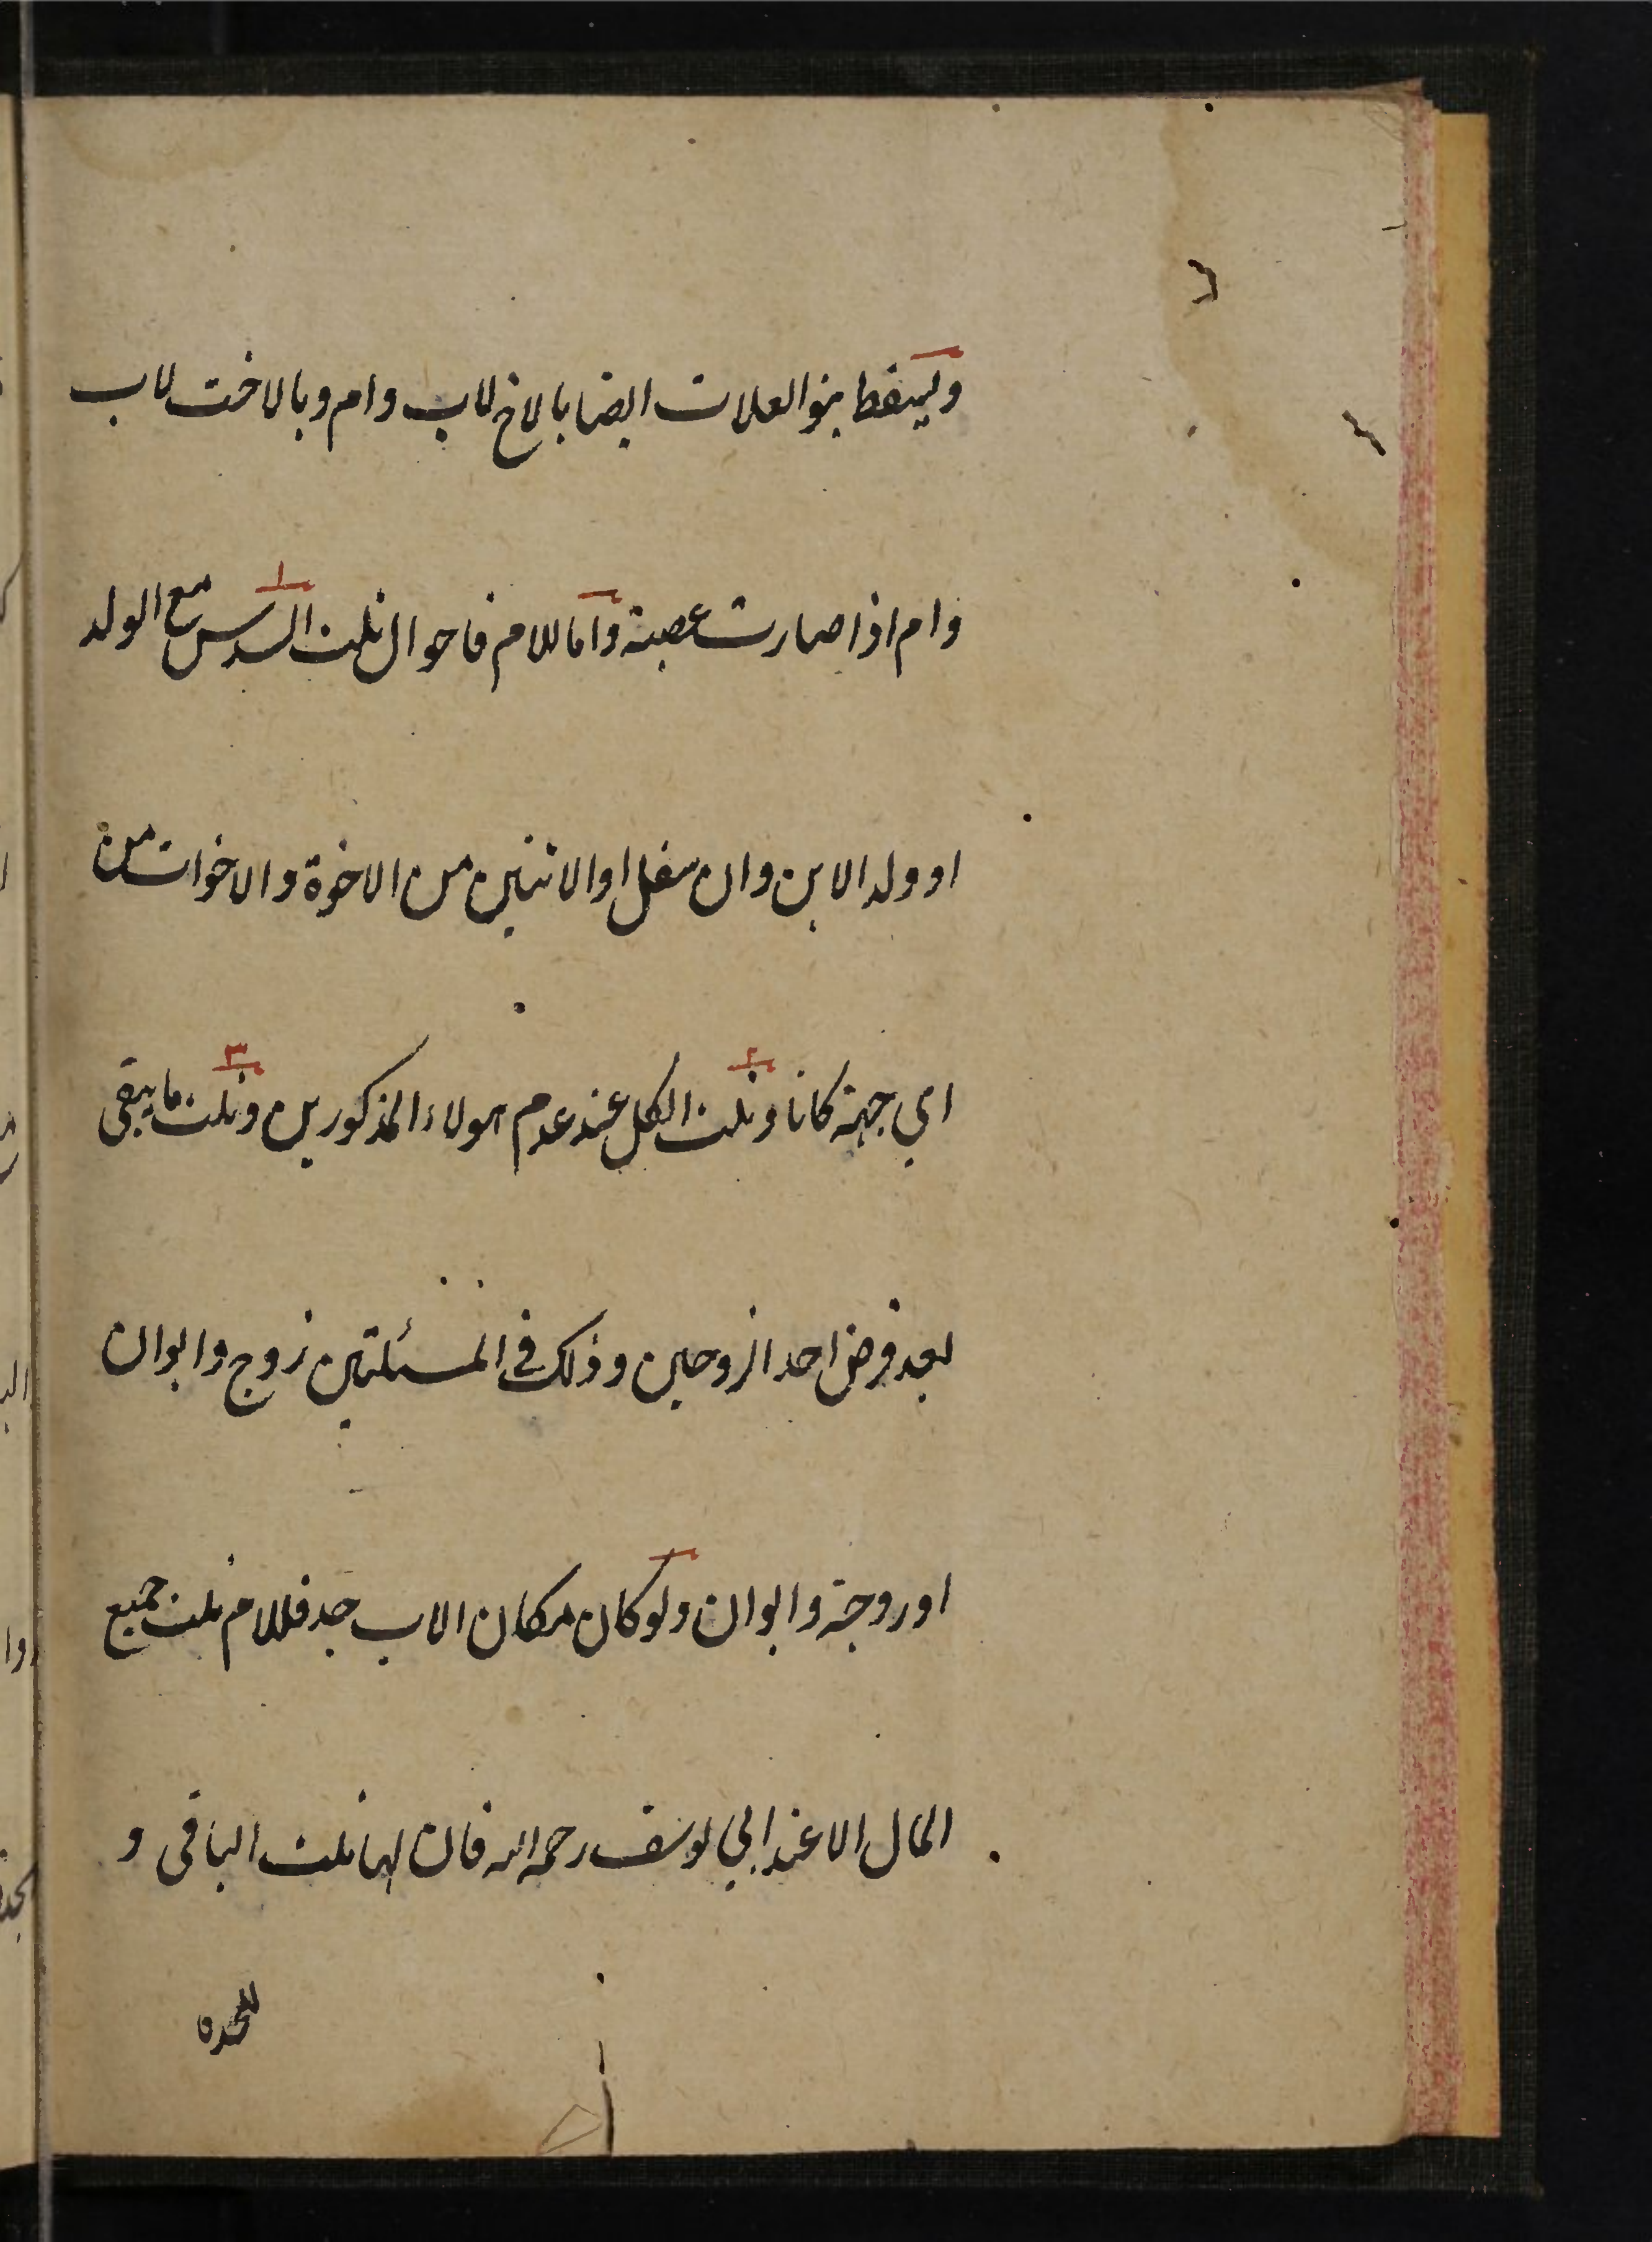 ويسقط بنو العلات ايضا بالاخ لاب وام وبالاخت لاب
وام اذا صارت عصبة واما للام فاحوال ثلث السدس مع الولد
او ولد الابن وان سفل او الاثنين من الاخوة والاخوات من
اي جهة كانا وثلث الكل عند عدم هولاء المذكورين وثلث ما يبقى
بعد فرض احد الزوجين وذلك في المسئلتين زوج وابوان
او زوجة وابوان ولو كان مكان الاب جد فللام ثلث جميع
المال الا عند ابي يوسف رحمه الله فان لها ثلث الباقي و
للجدة